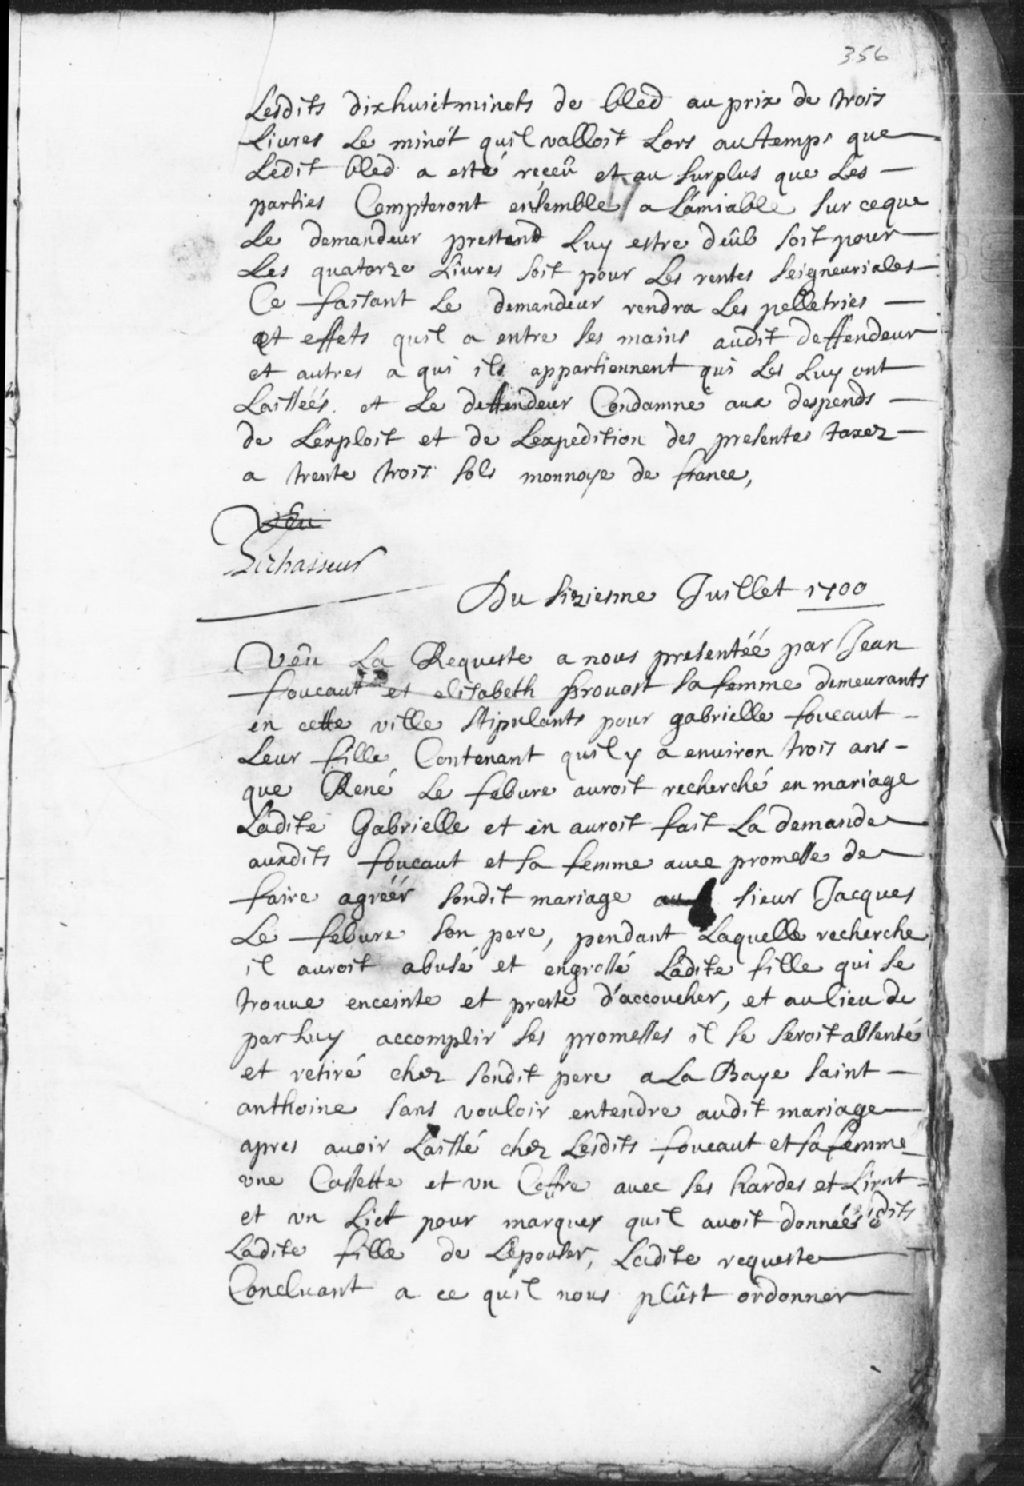 356
Lesdits dixhuict minots de bled au prix de trois
Livres Le minot quil valloit Lors au temps que
Ledit bled a esté reçeû et au surplus que Les
parties Compteront ensemble a Lamiable sur ceque
Le demandeur pretend Luy estre deûb soit pour
Les quatorze Livres soit pour Les rentes seigneuriales
Ce faisant Le demandeur rendra Les pelletries
et effets quil a entre ses mains audit deffendeur
et autres a qui ils appartiennent qui Les Luy ont
Laissées. et Le deffendeur Condamne aux despends
de Lexploit et de Lexpedition des presentes taxez
a trente trois sols monnoye de france,
Lechasseur
Du sixiesme Juillet 1700
Veu La Requeste a nous presentéé par Jean
foucaut et elisabeth prouost sa femme demeurants
en cette ville stipulants pour gabrielle foucaut
Leur fille Contenant quil y a enuiron trois ans
que René Le febure auroit recherché en mariage
Ladite Gabrielle et en auroit fait La demande
auxdits foucaut et sa femme auec promesse de
faire agréér sondit mariage au sieur Jacques
Le febure son pere, pendant Laquelle recherche
il auroit abusé et engrossé Ladite fille qui se
trouue enceinte et preste d'accoucher, et au lieu de
par Luy accomplir ses promesses il se seroit absenté
et retiré chez sondit pere a La Baye saint
anthoine sans vouloir entendre audit mariage
apres auoir Laissé chez Lesdits foucaut et sa femme
vne Cassette et vn Coffre auec ses hardes et
et vn Lict pour marquer quil auoit donnéé
Ladite fille de Lepouser, Ladite requeste
Concluant a ce quil nous plûst ordonner